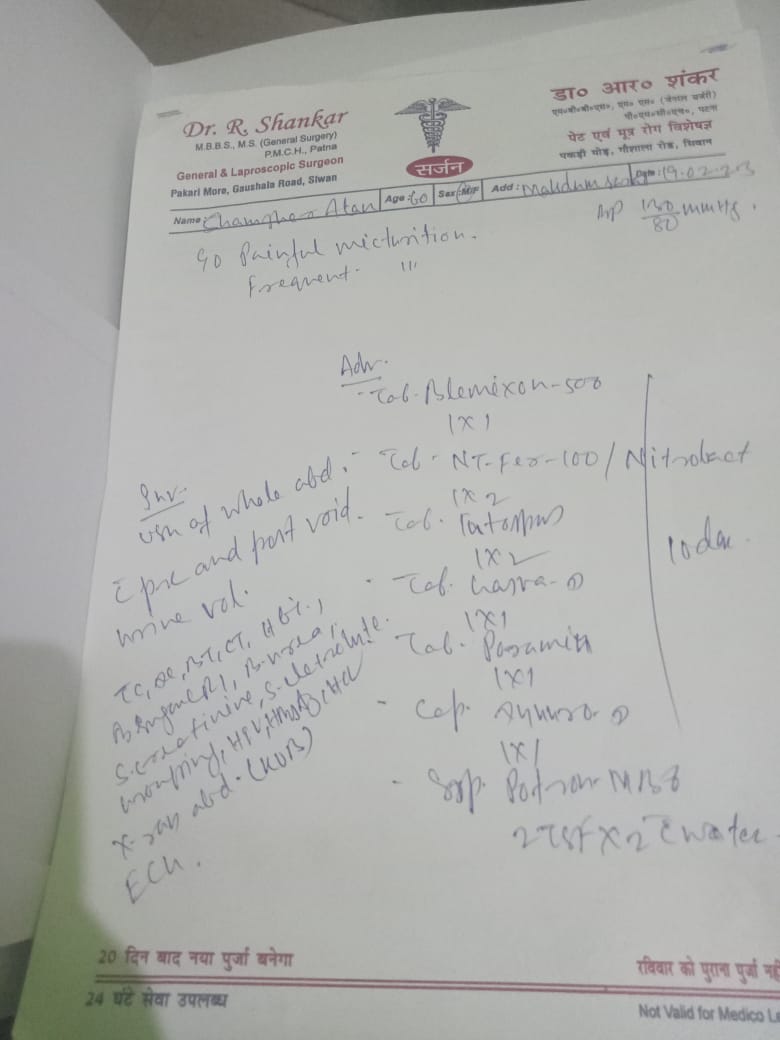 Dr. R. Shankar
M.B.B.S., M.S. (General Surgery)
P.M.C.H., Patna
General & Laproscopic Surgeon
Pakari More, Gaushala Road, Siwan
सर्जन
डा० आर० शंकर
एम०बी०बी०एस०, एम० एस० (जेनरल सर्जरी)
पी०एम०सी०एच०, पटना
पेट एवं मूत्र रोग विशेषज्ञ
पकड़ी मोड़, गौशाला रोड, सिवान
Name Age : 60 Sex : M/F Add : Date : 19-02-23
BP 130/80 mmHg.
Painful micturition.
Frequent. "
Adv.
Tab. -500
1x1
- Tab. -100 /
1x2
Tab.
1x2
- Tab. -D
1x1
Tab.
1x1
- Cap. -D
1x1
- Syp. MB8
2 TSF x 2 c̄ water
10 day.
Inv-
USG of whole abd.
c̄ pre and post void.
urine vol.
TC, DC, BT, CT, HB%,
B. Sugar (R), B. urea,
S. creatinine, S. eletrolyte.
grouping, HIV, HBsAg, HCV
X-ray abd. (KUB)
ECG.
20 दिन बाद नया पुर्जा बनेगा
24 घंटे सेवा उपलब्ध
रविवार को पुराना पुर्जा नहीं
Not Valid for Medico Le